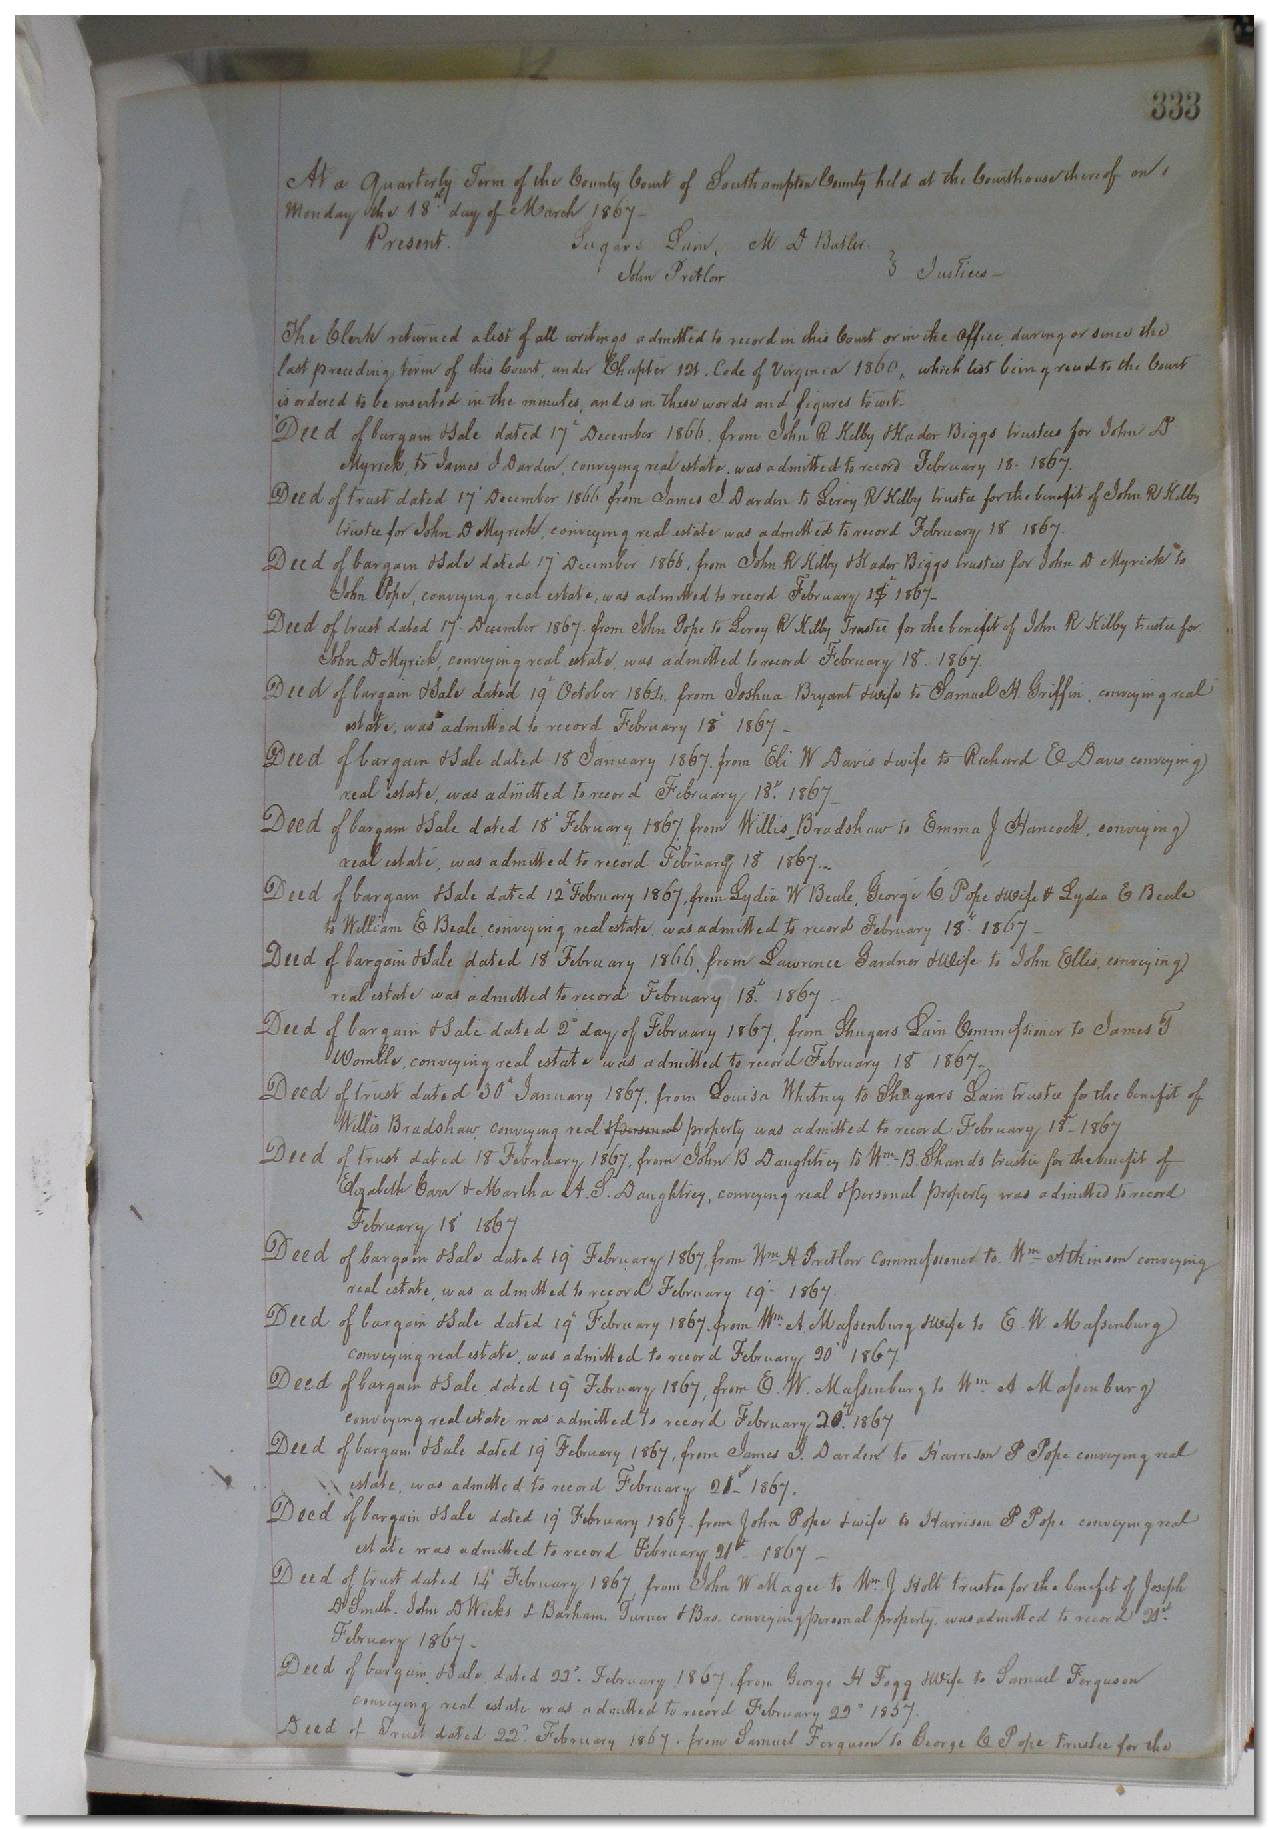 333
At a Quarterly Term of the County Court of Southampton County held at the Courthouse thereof on
Monday the 18th day of March 1867-
Present. Sugars Lain, M D Butler.
John Pretlow } Justices-
The Clerk returned a list of all writings admitted to record in this Court or in the Office, during or since the
last preceding term of this Court, under Chapter 121. Code of Virginia 1860, which list being read to the Court
is ordered to be inserted in the minutes, and is in these words and figures to wit-
Deed of bargain & Sale dated 17th December 1866, from John R Kilby & Kador Biggs trustees for John D
Myrick, to James J Darden, conveying real estate, was admitted to record February 18. 1867.
Deed of trust dated 17 December 1866 from James J Darden to Leroy R Kilby trustee for the benefit of John R Kilby
trustee for John D Myrick, conveying real estate was admitted to record February 18 1867.
Deed of bargain & Sale dated 17 December 1866, from John R Kilby & Kador Biggs trustees for John D Myrick to
John Pope, conveying real estate, was admitted to record February 18th 1867-
Deed of trust dated 17 December 1867. from John Pope to Leroy R Kilby Trustee for the benefit of John R Kilby trustee for
John D Myrick, conveying real estate, was admitted to record February 18. 1867.
Deed of bargain & Sale dated 19 October 1864, from Joshua Bryant & wife to Samuel H. Griffin, conveying real
estate, was admitted to record February 18 1867-
Deed of bargain & Sale dated 18 January 1867. from Eli W Davis & wife to Richard E Davis conveying
real estate, was admitted to record February 18th. 1867-
Deed of bargain & Sale dated 18 February 1867 from Willis Bradshaw to Emma J Hancock, conveying
real estate, was admitted to record February 18 1867-
Deed of bargain & Sale dated 12 February 1867, from Lydia W Beale, George C Pope & wife & Lydia E Beale
to William E Beale, conveying real estate, was admitted to record February 18. 1867-
Deed of bargain & Sale dated 18 February 1866, from Lawrence Gardner & Wife to John Ellis, conveying
real estate was admitted to record February 18th. 1867-
Deed of bargain & Sale dated 2d day of February 1867, from Shugars Lain Commissioner to James T
Womble, conveying real estate was admitted to record February 18 1867-
Deed of trust dated 30th January 1867, from Louisa Whitney to Shugars Lain trustee for the benefit of
Willis Bradshaw, conveying real & personal property was admitted to record February 18- 1867
Deed of trust dated 18 February 1867, from John B Daughtrey to Wm B. Shands trustee for the benefit of
Elizabeth Carr & Martha A. S. Daughtrey, conveying real & personal property was admitted to record
February 18 1867
Deed of bargain & Sale dated 19 February 1867, from Wm H Pretlow Commissioner to Wm Atkinson conveying
real estate, was admitted to record February 19- 1867.
Deed of bargain & Sale dated 19 February 1867, from Wm. A. Massenburg & wife to E. W Massenburg
conveying real estate, was admitted to record February 20 1867.
Deed of bargain & Sale dated 19 February 1867, from E. W. Massenburg to Wm A Massenburg
conveying real estate was admitted to record February 20th. 1867
Deed of bargain & Sale dated 19 February 1867, from James J. Darden to Harrison P Pope conveying real
estate, was admitted to record February 21st 1867.
Deed of bargain & Sale dated 19 February 1867. from John Pope & wife to Harrison P Pope conveying real
estate was admitted to record February 21st- 1867-
Deed of trust dated 14 February 1867, from John W Magee to Wm J Holt trustee for the benefit of Joseph
D Smith. John D Weeks & Barham, Turner & Bro. conveying personal property, was admitted to record 21st
February 1867-
Deed of bargain & Sale dated 22d. February 1867, from George H Fogg & Wife to Samuel Ferguson
conveying real estate was admitted to record February 22d 1857.
Deed of Trust dated 22d. February 1867. from Samuel Ferguson to George C Pope trustee for the